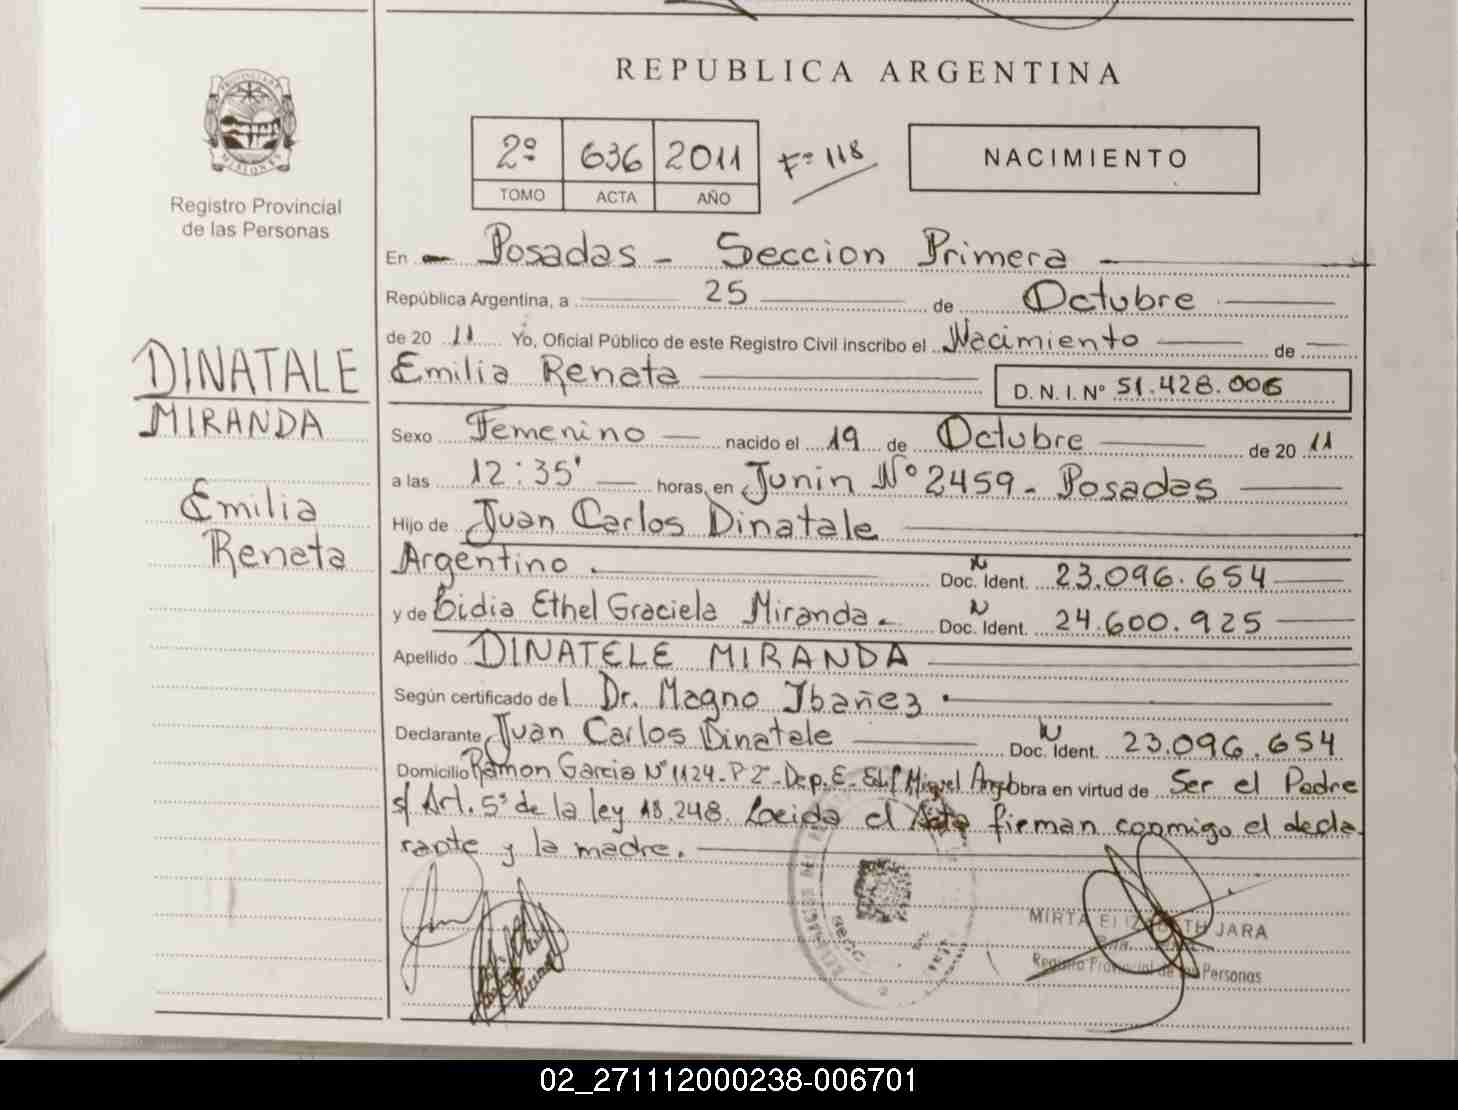 REPUBLICA ARGENTINA
PROVINCIA
MISIONES
Registro Provincial
de las Personas
2º 636 2011 Fº 118
TOMO ACTA AÑO
NACIMIENTO
En Posadas - Seccion Primera
República Argentina, a 25 de Octubre
de 20 11 Yo, Oficial Público de este Registro Civil inscribo el Nacimiento de
DINATALE
MIRANDA
Emilia
Renata
Emilia Renata D. N. I. Nº 51.428.006
Sexo Femenino nacido el 19 de Octubre de 20 11
a las 12:35' horas, en Junin Nº 2459 - Posadas
Hijo de Juan Carlos Dinatale
Argentino. Doc. Ident. 23.096.654
y de Lidia Ethel Graciela Miranda. Doc. Ident. 24.600.925
Apellido DINATELE MIRANDA
Según certificado del Dr. Magno Ibañez.
Declarante Juan Carlos Dinatale Doc. Ident. 23.096.654
Domicilio Ramon Garcia Nº 1124-P 2º-Dep. E-Edif Miguel Angel Obra en virtud de Ser el Padre
s/ Art. 5º de la ley 18.248. Leida el Acta firman conmigo el decla
rante y la madre.
MIRTA ELIZABETH JARA
Registro Provincial de las Personas
02_271112000238-006701